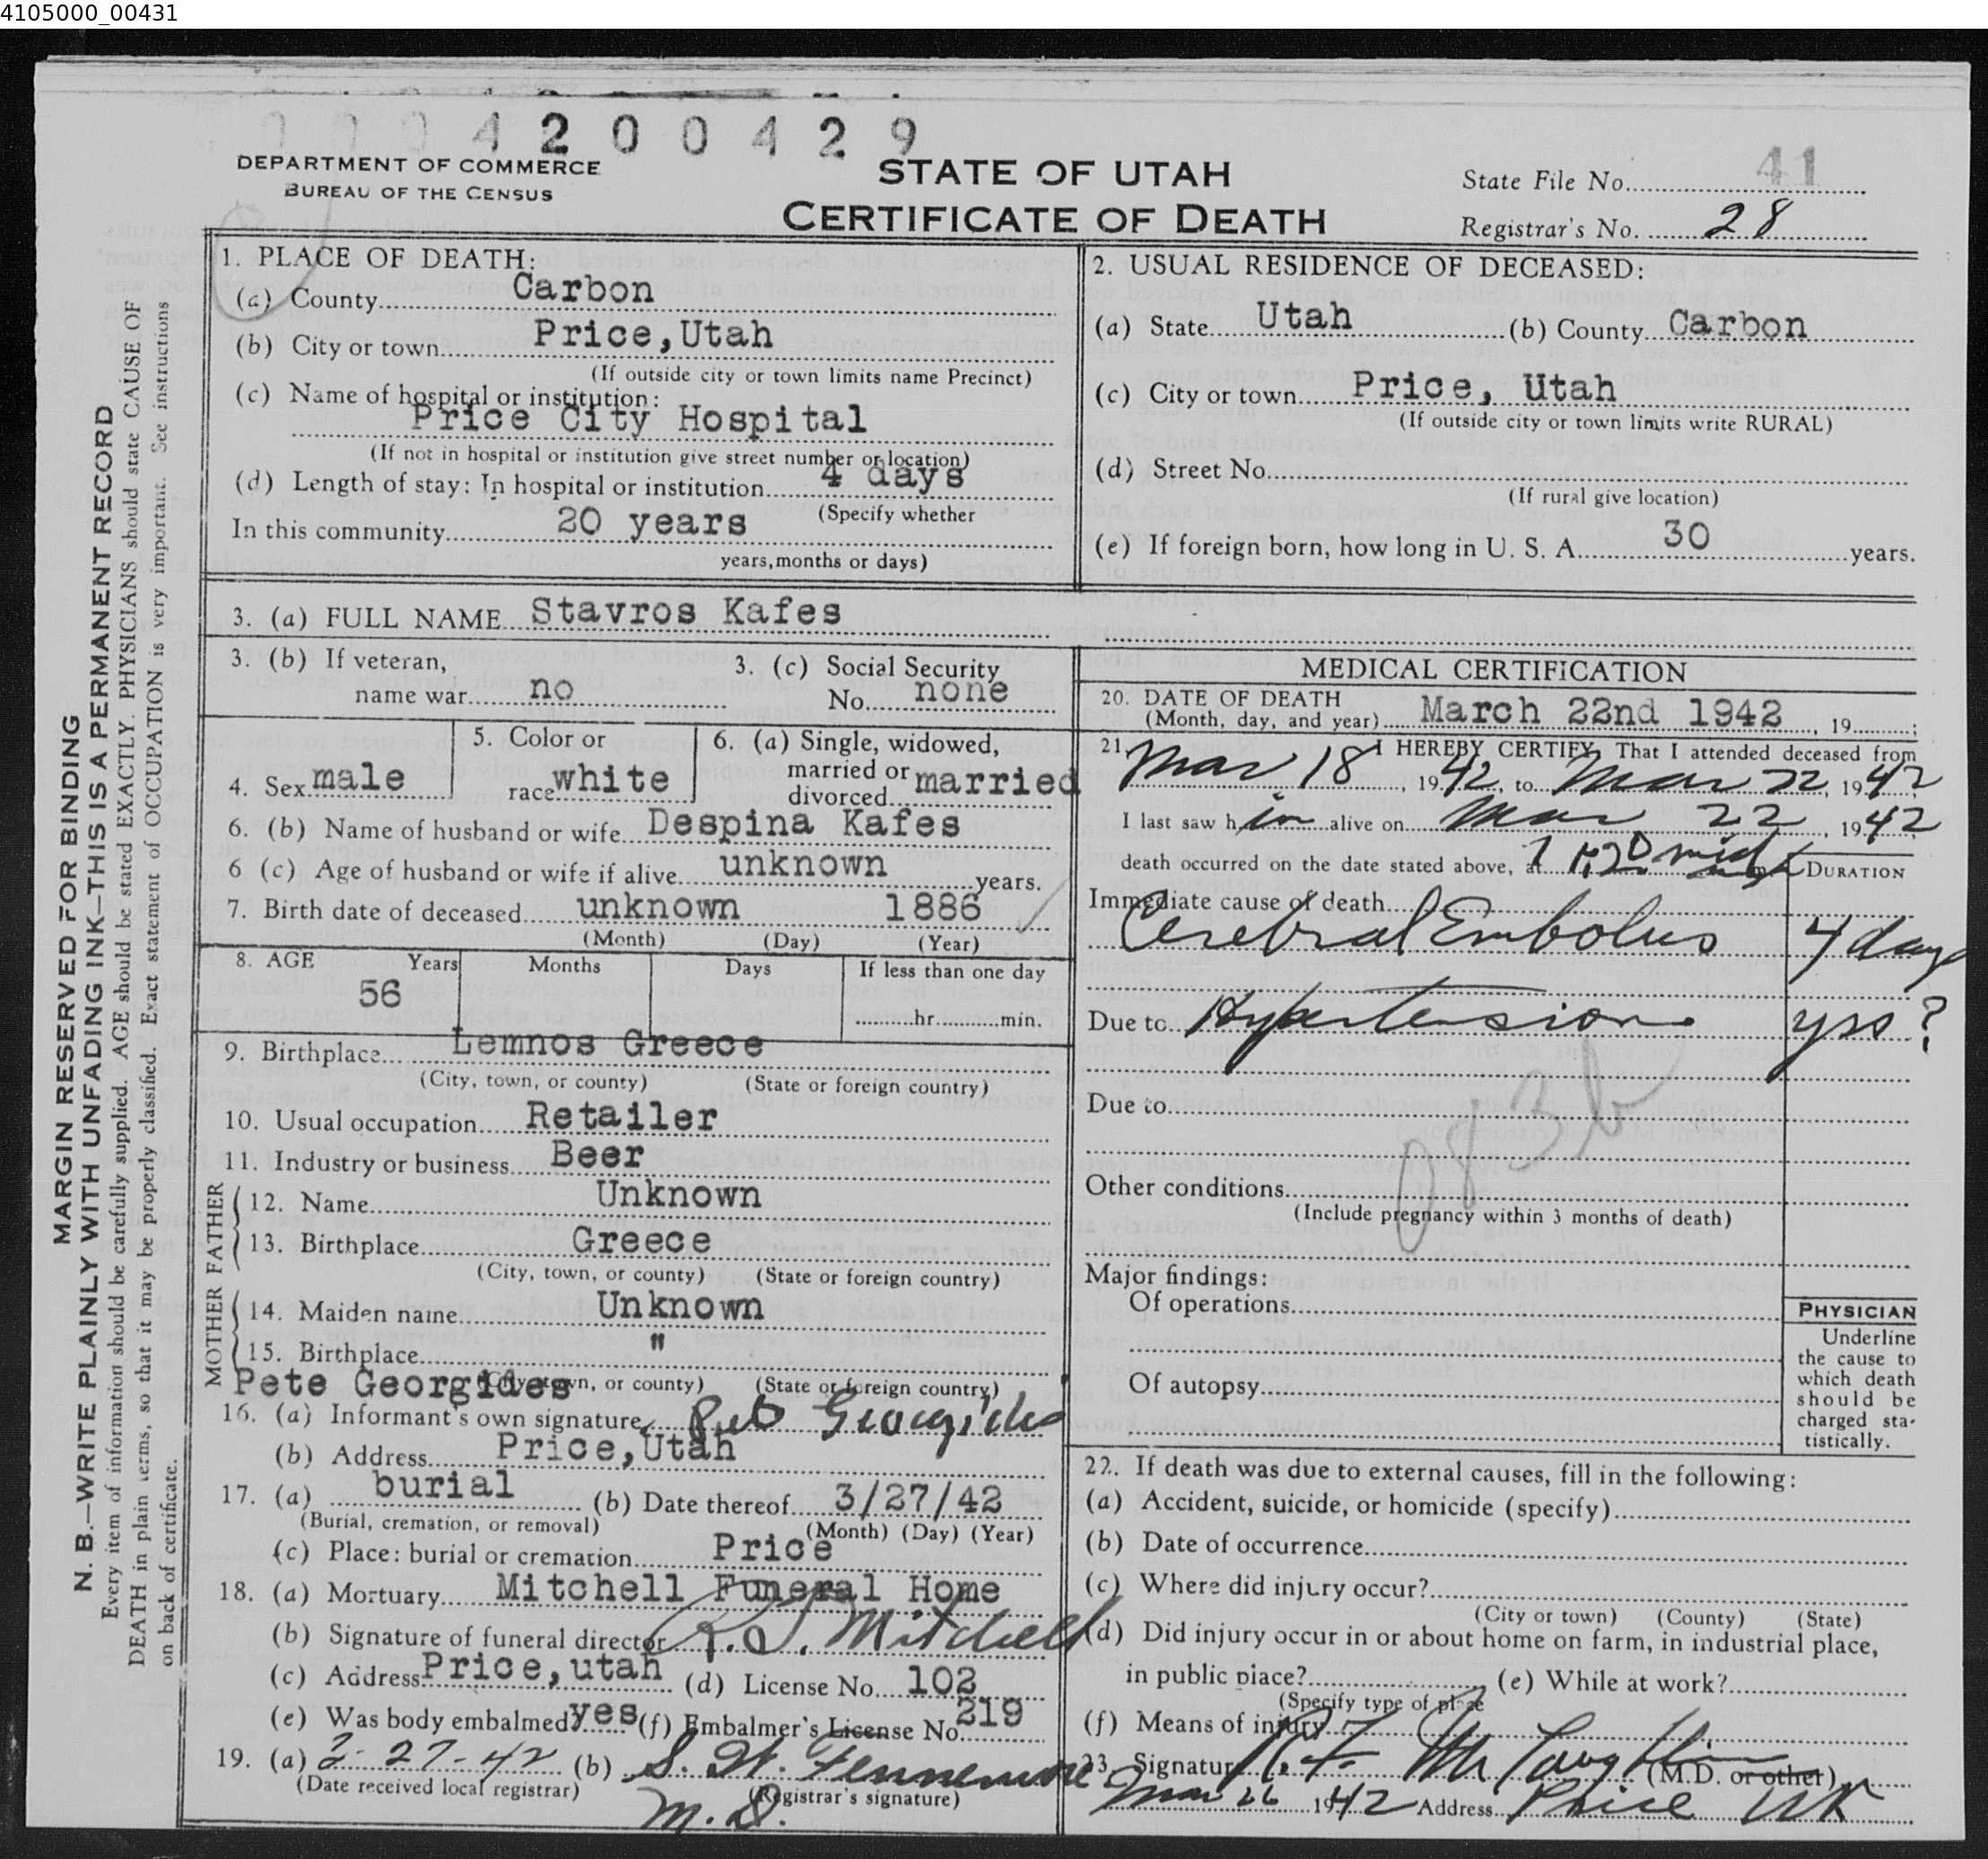 4105000_00431
0004200429
DEPARTMENT OF COMMERCE
BUREAU OF THE CENSUS
STATE OF UTAH
CERTIFICATE OF DEATH
State File No. 41
Registrar's No. 28
MARGIN RESERVED FOR BINDING
N. B.—WRITE PLAINLY WITH UNFADING INK—THIS IS A PERMANENT RECORD
Every item of information should be carefully supplied. AGE should be stated EXACTLY. PHYSICIANS should state CAUSE OF
DEATH in plain terms, so that it may be properly classified. Exact statement of OCCUPATION is very important. See instructions
on back of certificate.
1. PLACE OF DEATH:
(a) County Carbon
(b) City or town Price, Utah
(If outside city or town limits name Precinct)
(c) Name of hospital or institution:
Price City Hospital
(If not in hospital or institution give street number or location)
(d) Length of stay: In hospital or institution 4 days
(Specify whether
In this community 20 years
years, months or days)
2. USUAL RESIDENCE OF DECEASED:
(a) State Utah (b) County Carbon
(c) City or town Price, Utah
(If outside city or town limits write RURAL)
(d) Street No.
(If rural give location)
(e) If foreign born, how long in U. S. A. 30 years.
3. (a) FULL NAME Stavros Kafes
3. (b) If veteran,
name war no
3. (c) Social Security
No. none
4. Sex male
5. Color or
race white
6. (a) Single, widowed,
married or
divorced married
6. (b) Name of husband or wife Despina Kafes
6 (c) Age of husband or wife if alive unknown years.
7. Birth date of deceased unknown 1886
(Month) (Day) (Year)
8. AGE Years Months Days If less than one day
56 hr. min.
9. Birthplace Lemnos Greece
(City, town, or county) (State or foreign country)
10. Usual occupation Retailer
11. Industry or business Beer
FATHER
12. Name Unknown
13. Birthplace Greece
(City, town, or county) (State or foreign country)
MOTHER
14. Maiden name Unknown
15. Birthplace "
(City, town, or county) (State or foreign country)
Pete Georgides
16. (a) Informant's own signature Pete Georgides
(b) Address Price, Utah
17. (a) burial (b) Date thereof 3/27/42
(Burial, cremation, or removal) (Month) (Day) (Year)
(c) Place: burial or cremation Price
18. (a) Mortuary Mitchell Funeral Home
(b) Signature of funeral director Mitchell
(c) Address Price, utah (d) License No. 102
(e) Was body embalmed yes (f) Embalmer's License No. 219
19. (a) 3-27-42 (b) S. W. Fennemore
(Date received local registrar) (Registrar's signature)
M. D.
MEDICAL CERTIFICATION
20. DATE OF DEATH
(Month, day, and year) March 22nd 1942, 19
21. I HEREBY CERTIFY, That I attended deceased from
Mar 18, 1942, to Mar 22, 1942
I last saw him alive on Mar 22, 1942
death occurred on the date stated above, at m.
DURATION
Immediate cause of death
Cerebral Embolus 4 days
Due to Hypertension yrs?
Due to
Other conditions
(Include pregnancy within 3 months of death)
Major findings:
Of operations
Of autopsy
PHYSICIAN
Underline
the cause to
which death
should be
charged sta-
tistically.
22. If death was due to external causes, fill in the following:
(a) Accident, suicide, or homicide (specify)
(b) Date of occurrence
(c) Where did injury occur?
(City or town) (County) (State)
(d) Did injury occur in or about home on farm, in industrial place,
in public place? (e) While at work?
(Specify type of place
(f) Means of injury
23. Signature (M.D. or other)
Mar 26 1942 Address Price